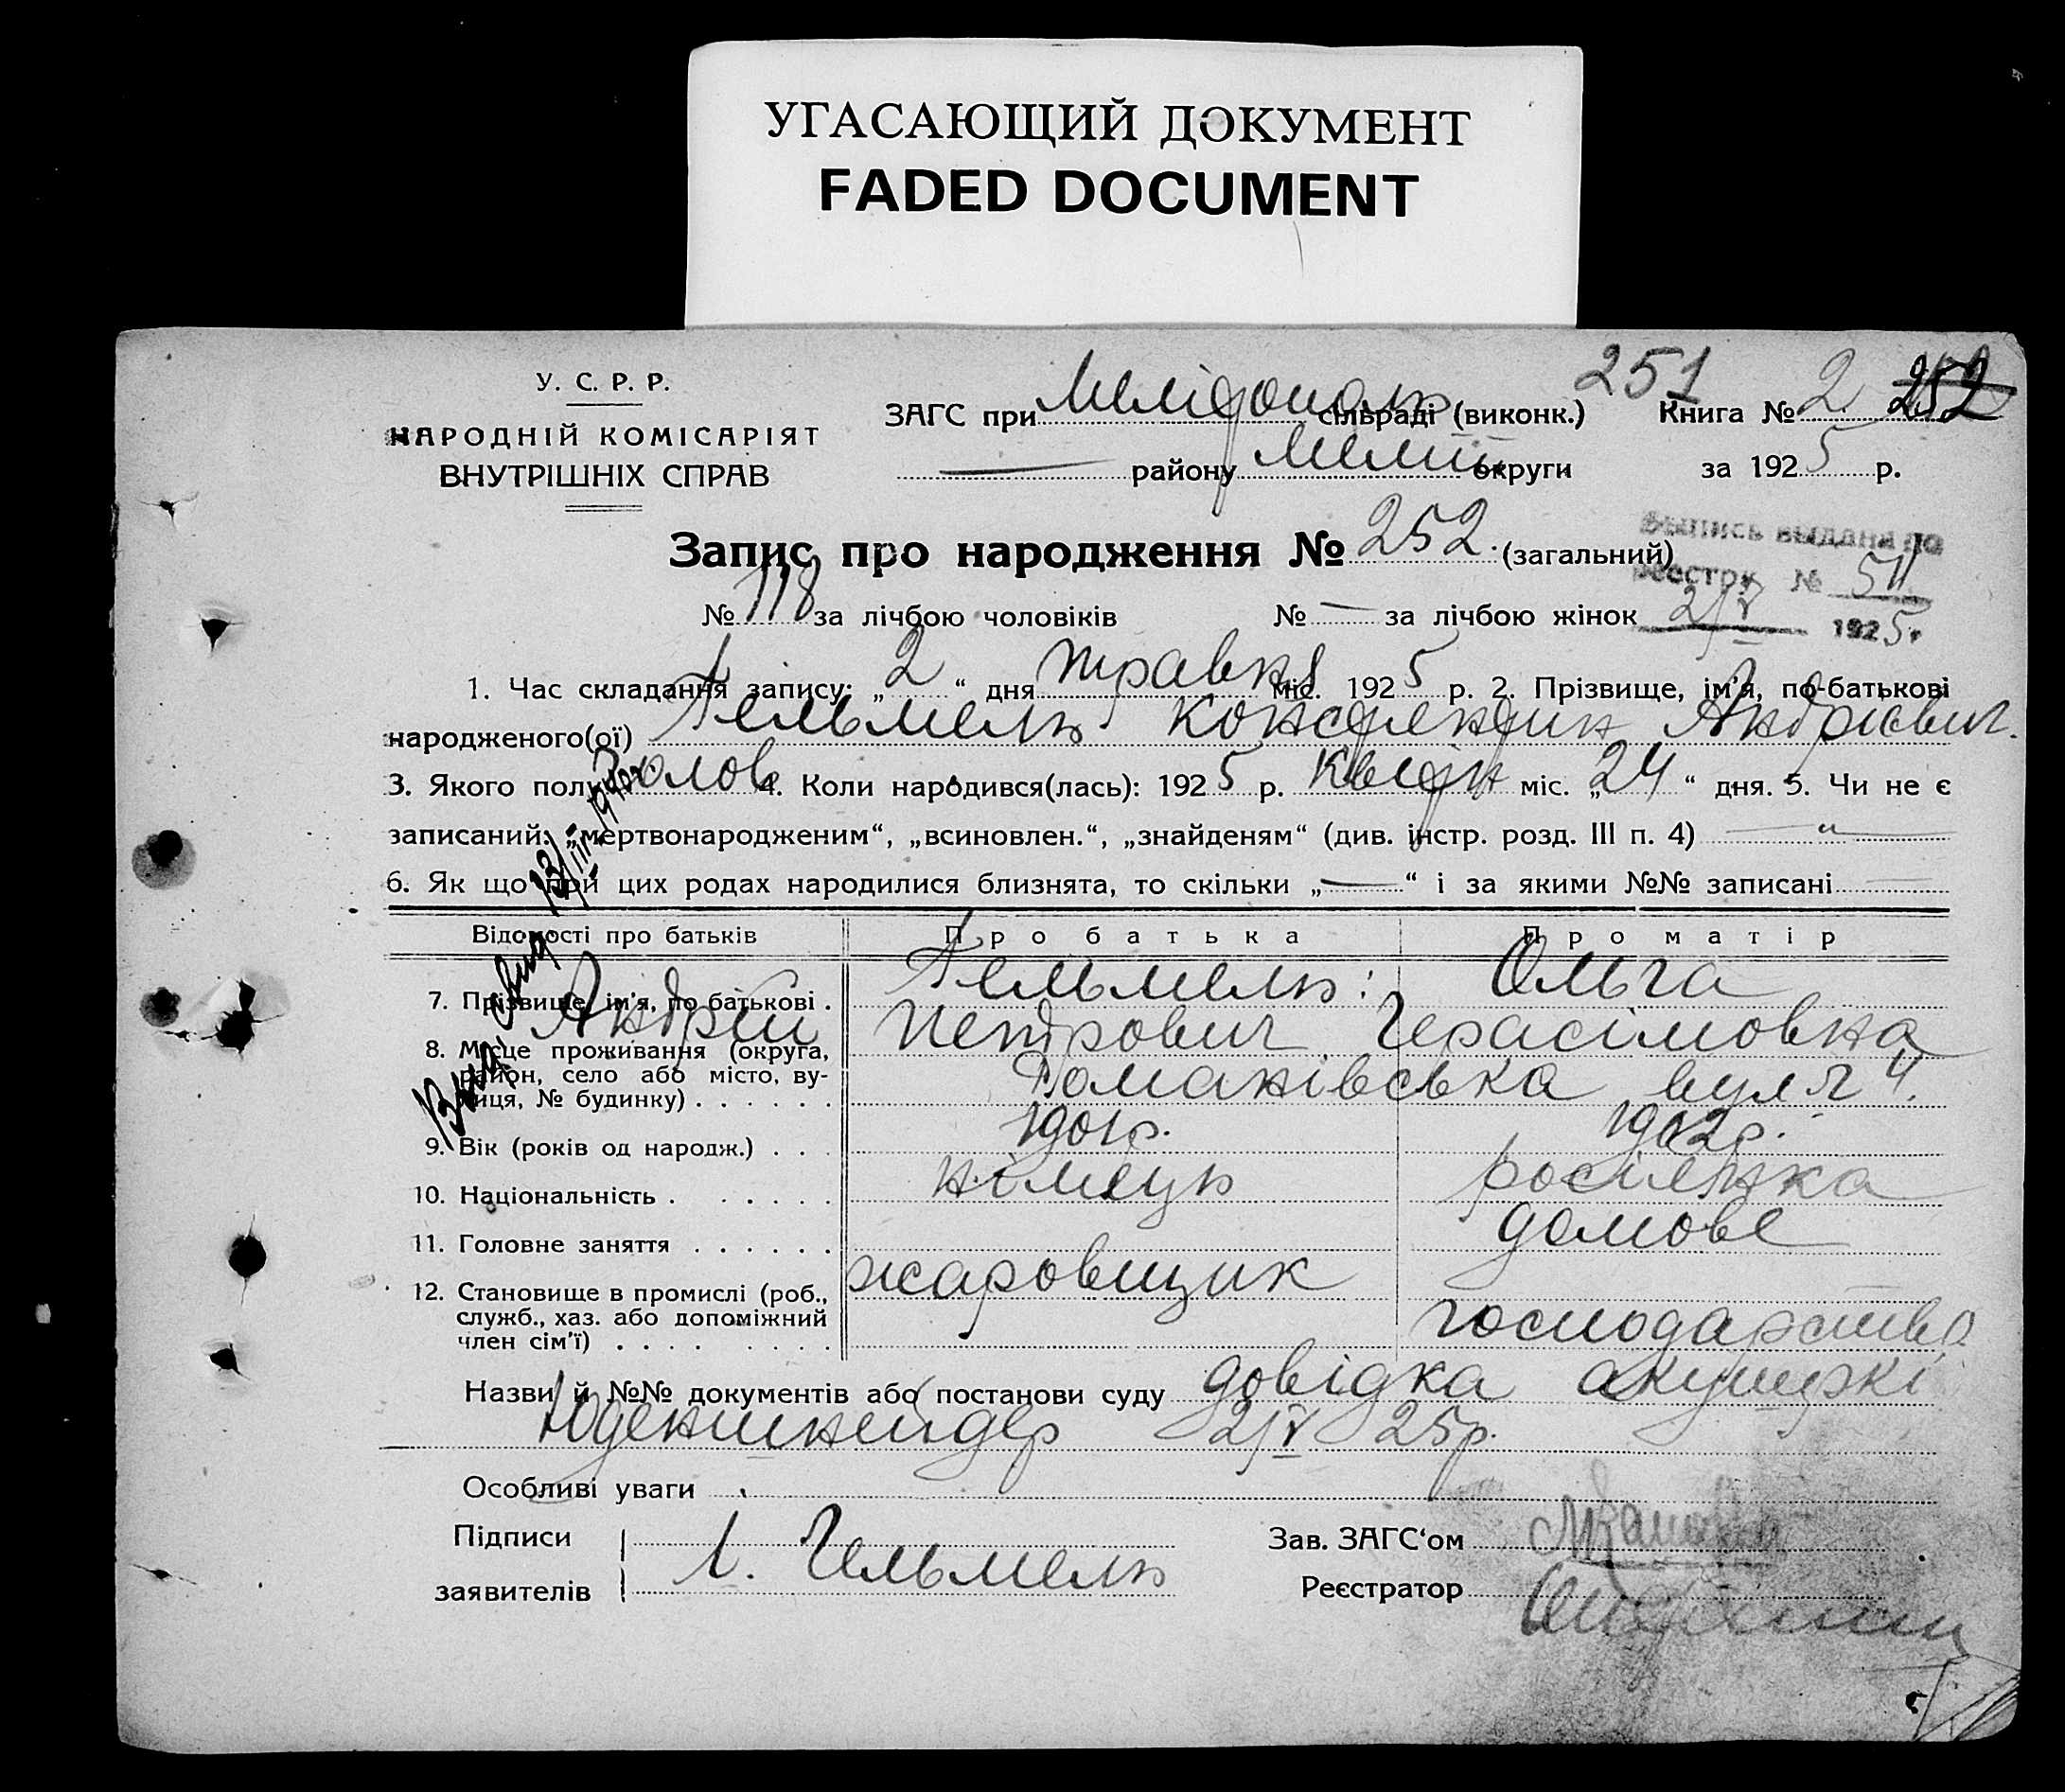 УГАСАЮЩИЙ ДОКУМЕНТ
FADED DOCUMENT
251
У. С. Р. Р.
НАРОДНІЙ КОМІСАРІЯТ
ВНУТРІШНІХ СПРАВ
ЗАГС при Мелітополь сільраді (виконк.) Книга № 2 252
району Меліт округи за 1925 р.
Запис про народження № 252. (загальний)
Выпись выдана по
реестру № 511
2/V 1925 г
№ 118 за лічбою чоловіків № — за лічбою жінок
1. Час складання запису: „2“ дня травня міс. 1925 р. 2. Прізвище, ім'я, по-батькові
народженого(ої) Гельмель Констянтин Андрієвич.
3. Якого полу чолов 4. Коли народився(лась): 1925 р. Квітн міс. „24“ дня. 5. Чи не є
записаний: „мертвонародженим“, „всиновлен.“, „знайденям“ (див. інстр. розд. III п. 4) — „ —
6. Як що при цих родах народилися близнята, то скільки „—“ і за якими №№ записані —
Відомості про батьків Про батька Про матір
7. Прізвище, ім'я, по батькові . Гельмель: Ольга
Андрій Петрович Герасімовна
8. Місце проживання (округа,
район, село або місто, ву-
лиця, № будинку) . . . . . . Романівська вул 4.
9. Вік (років од народж.) . . . 1901р. 1902р.
10. Національність . . . . . . німець росіянка
11. Головне заняття . . . . . . домове
жаровщик
12. Становище в промислі (роб.,
служб., хаз. або допоміжний
член сім'ї) . . . . . . . . господарство
Назви й №№ документів або постанови суду довідка акушеркі
2/V 25р.
Особливі уваги
Підписи
заявителів Гельмель
Зав. ЗАГС‘ом
Реєстратор